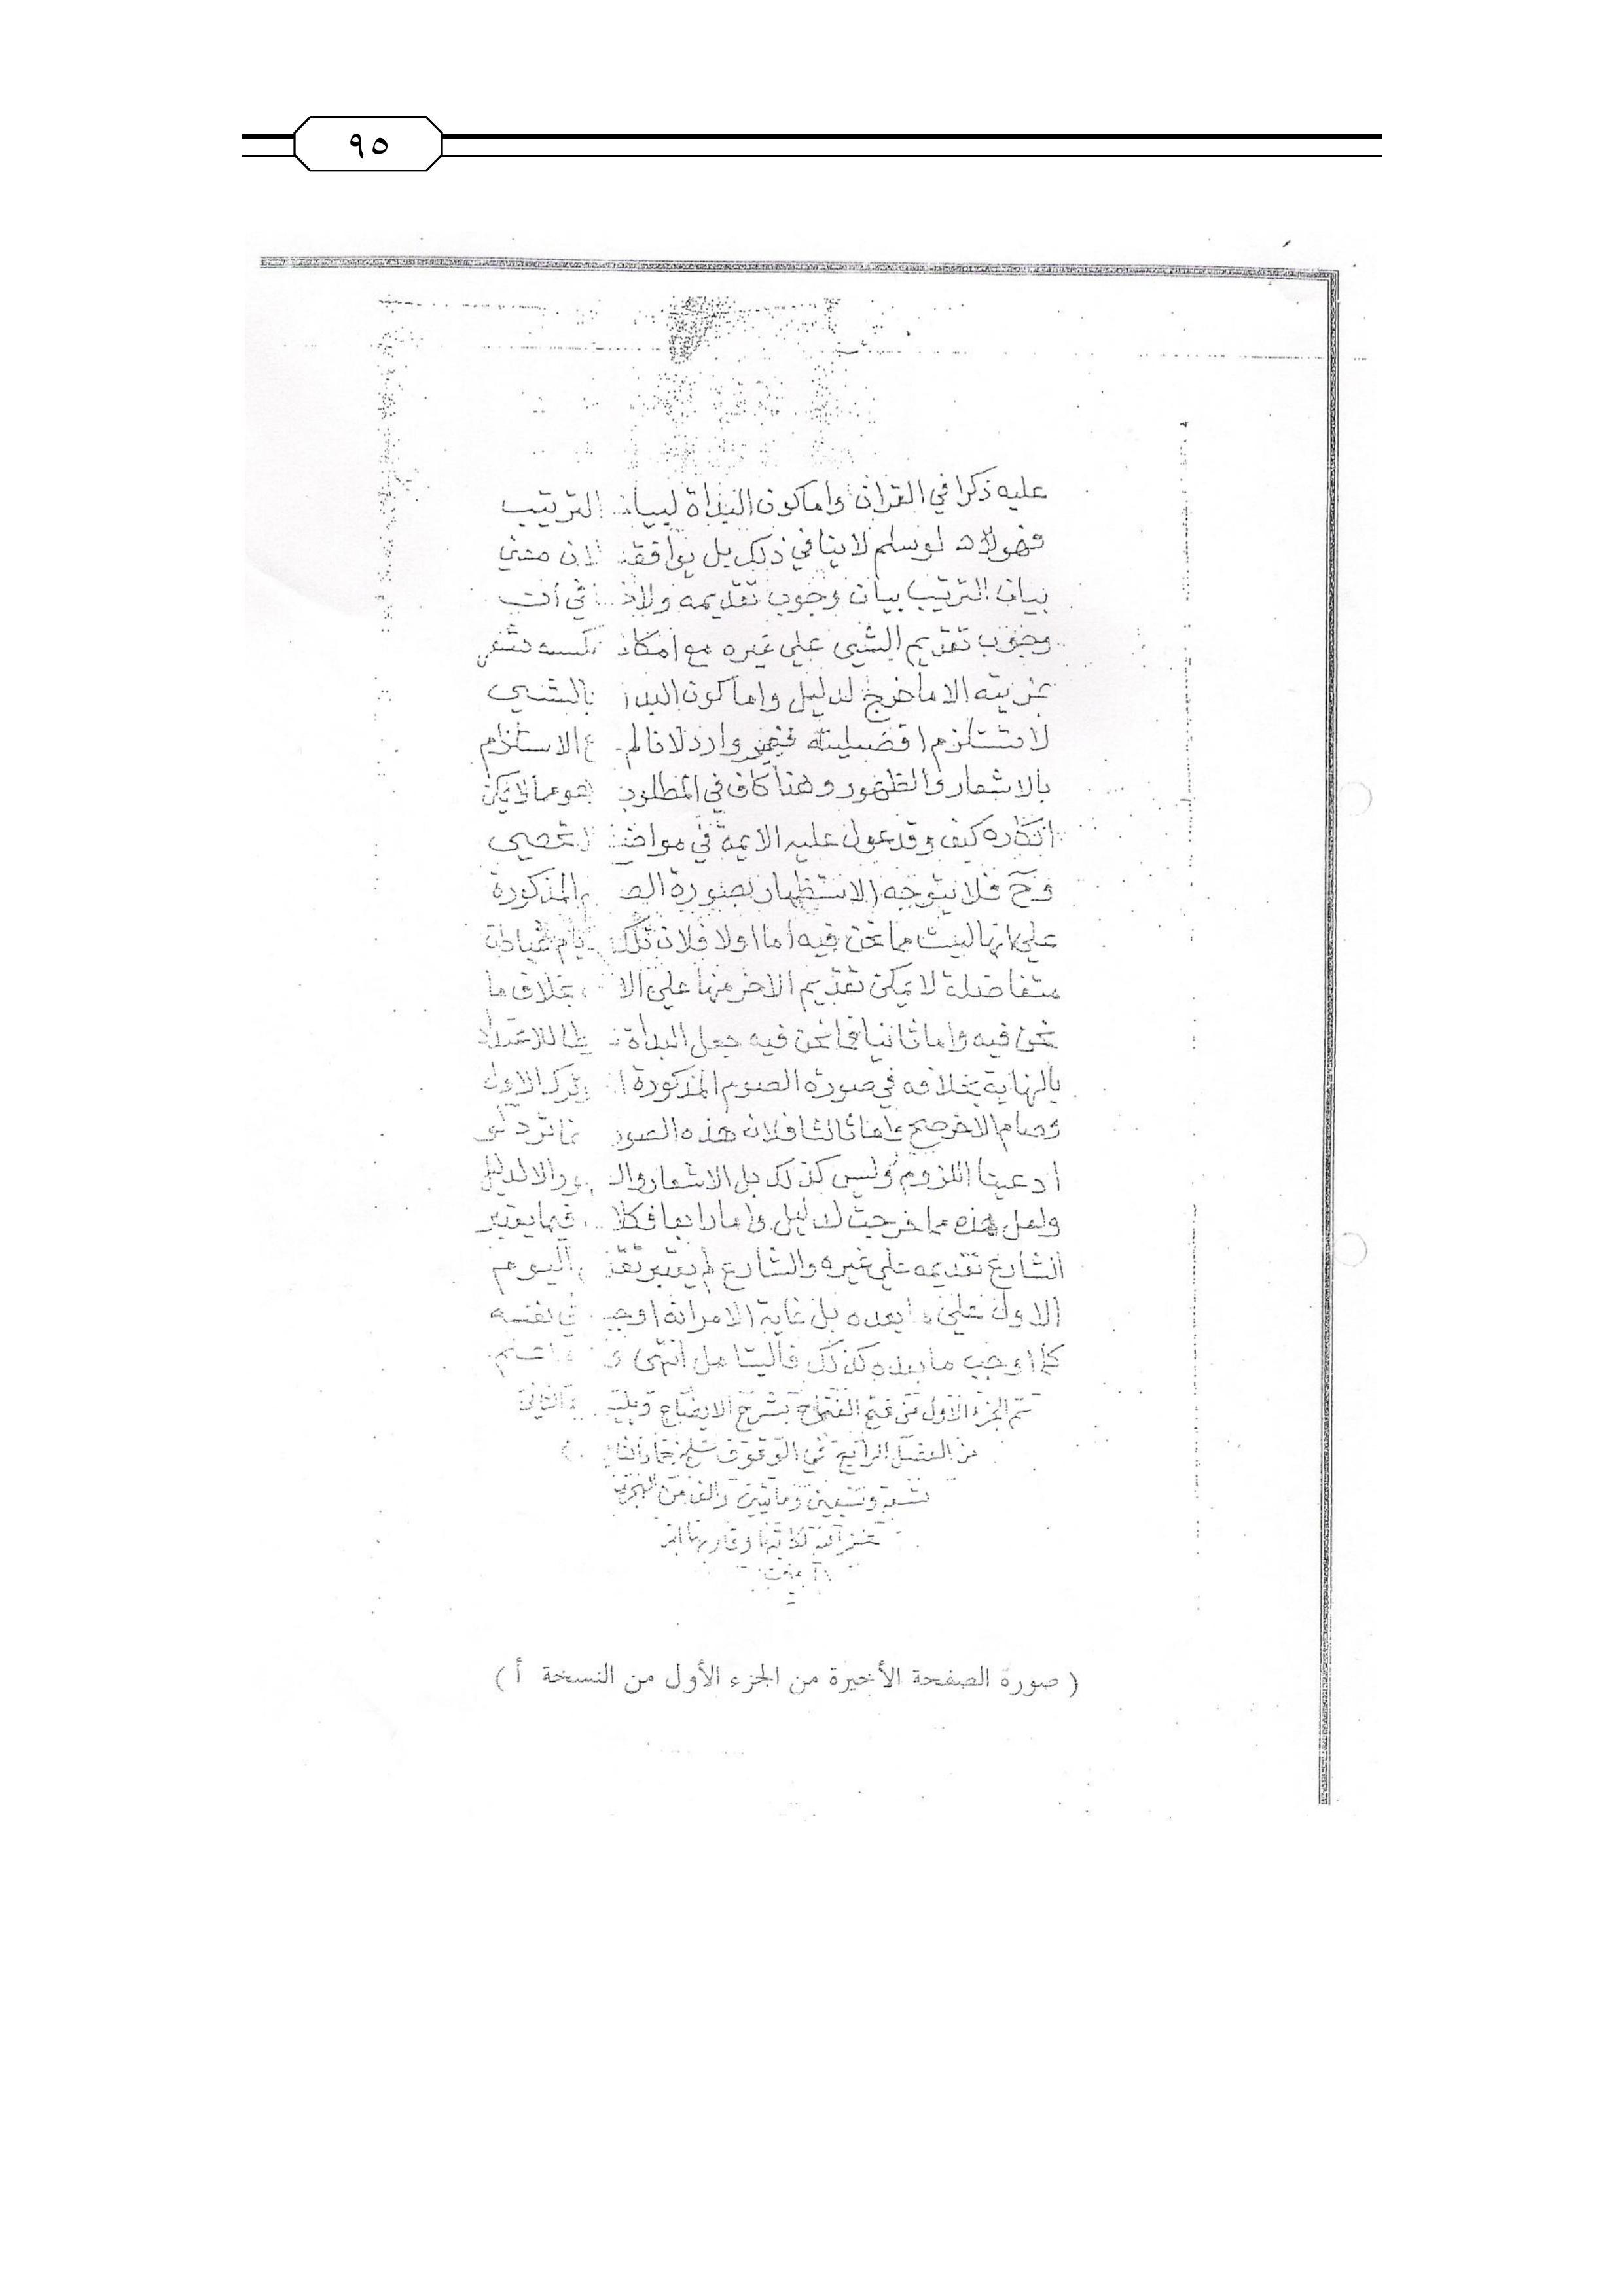 ٩٥
عليه ذكرا في القران واما كون البداة لبيان الترتيب
فهو لانه لو سلم لا ينافي ذلك بل يوافقه لان معني
بيان الترتيب بيان وجوب تقديمه ولا في أن
وجوب تقديم الشيى علي غيره مع امكان عكسه
مزيته الا ما خرج لدليل واما كون البداة بالشيى
لا تستلزم افضيليته فغير وارد لانا لم الاستلزام
بالاشعار والظهور وهذا كاف في المطلوب هو مما لا يمكن
انكاره كيف وقد عول عليه الايمة في مواضع لا تحصي
وح فلا يتوجه الاستظهار بصورة المذكورة
علي انها ليست مما نحن فيه اما اولا فلان تلك
متفاضلة لا يمكن تقديم الاخر منها علي الا بخلاف ما
نحن فيه واما ثانيا فما نحن فيه جعل البداة للاعتداد
بالنهاية بخلافه في صورة الصوم المذكورة ترك الاول
وصام الاخر صح واما ثالثا فلان هذه الصور انما ترد لو
ادعينا اللزوم وليس كذلك بل الاشعار والا لدليل
ولعل هذه مما خرجت لدليل واما رابعا فكلا فيما يعتبر
الشارع تقديمه علي غيره والشارع لم يعتبر اليوم
الاول علي ما بعده بل غاية الامر انه اوجب في نفسه
كما اوجب ما بعده كذلك فاليتامل انتهى
تم الجزء الاول من فتح الفتاح بشرح الايضاح ويليه الثاني
من الفصل الرابع في الوقوف
تسعة وتسعين ومايتين والف من الهجرة
غفر لكاتبها
آمين
( صورة الصفحة الأخيرة من الجزء الأول من النسخة أ )